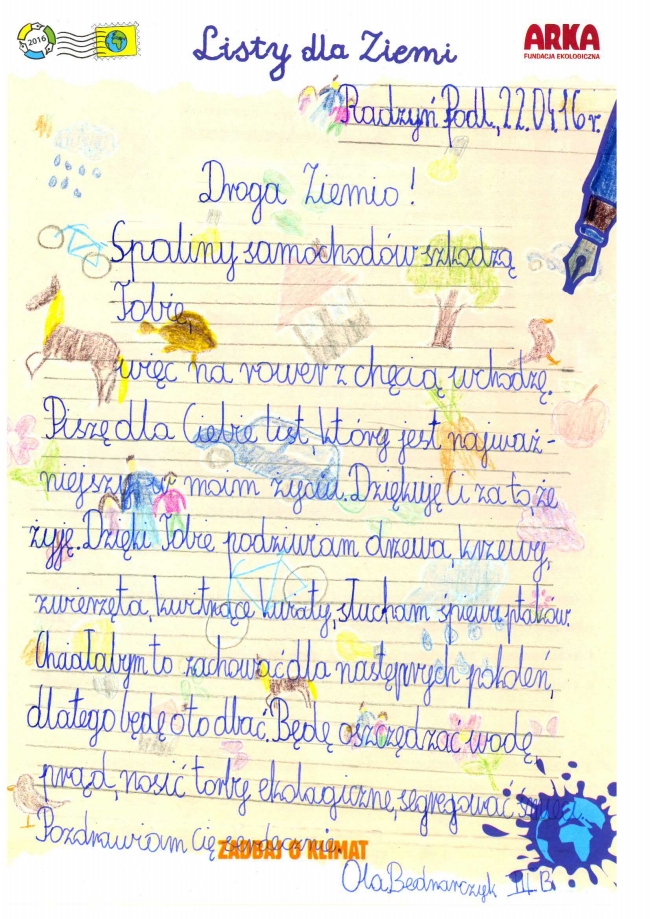 2016
Listy dla Ziemi
ARKA
FUNDACJA EKOLOGICZNA
Radzyń Podl., 22.04.16 r.
Droga Ziemio!
Spaliny samochodów szkodzą
Tobie,
więc na rower z chęcią wchodzę.
Piszę dla Ciebie list, który jest najważ-
niejszy w moim życiu. Dziękuję Ci za to, że
żyję. Dzięki Tobie podziwiam drzewa, krzewy,
zwierzęta, kwitnące kwiaty, słucham śpiewu ptaków.
Chciałabym to zachować dla następnych pokoleń,
dlatego będę o to dbać. Będę oszczędzać wodę,
prąd, nosić torby ekologiczne, segregować śmieci.
Pozdrawiam Cię serdecznie.
ZADBAJ O KLIMAT
Ola Bednarczyk III B